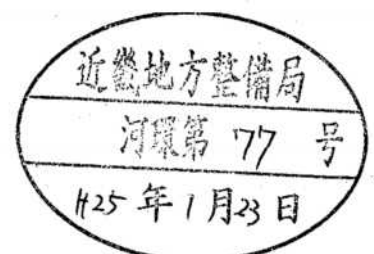 近畿地方整備局
河環第 77 号
H25 年 1 月 23 日